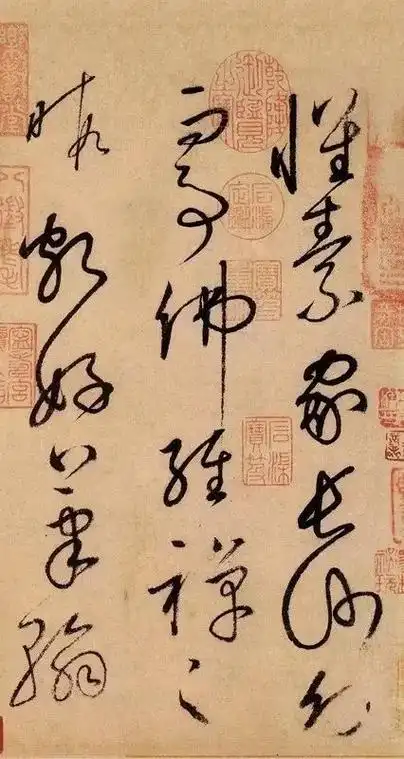 懷素家長沙幼
而事佛經禪之
暇頗好筆翰
石渠寶笈